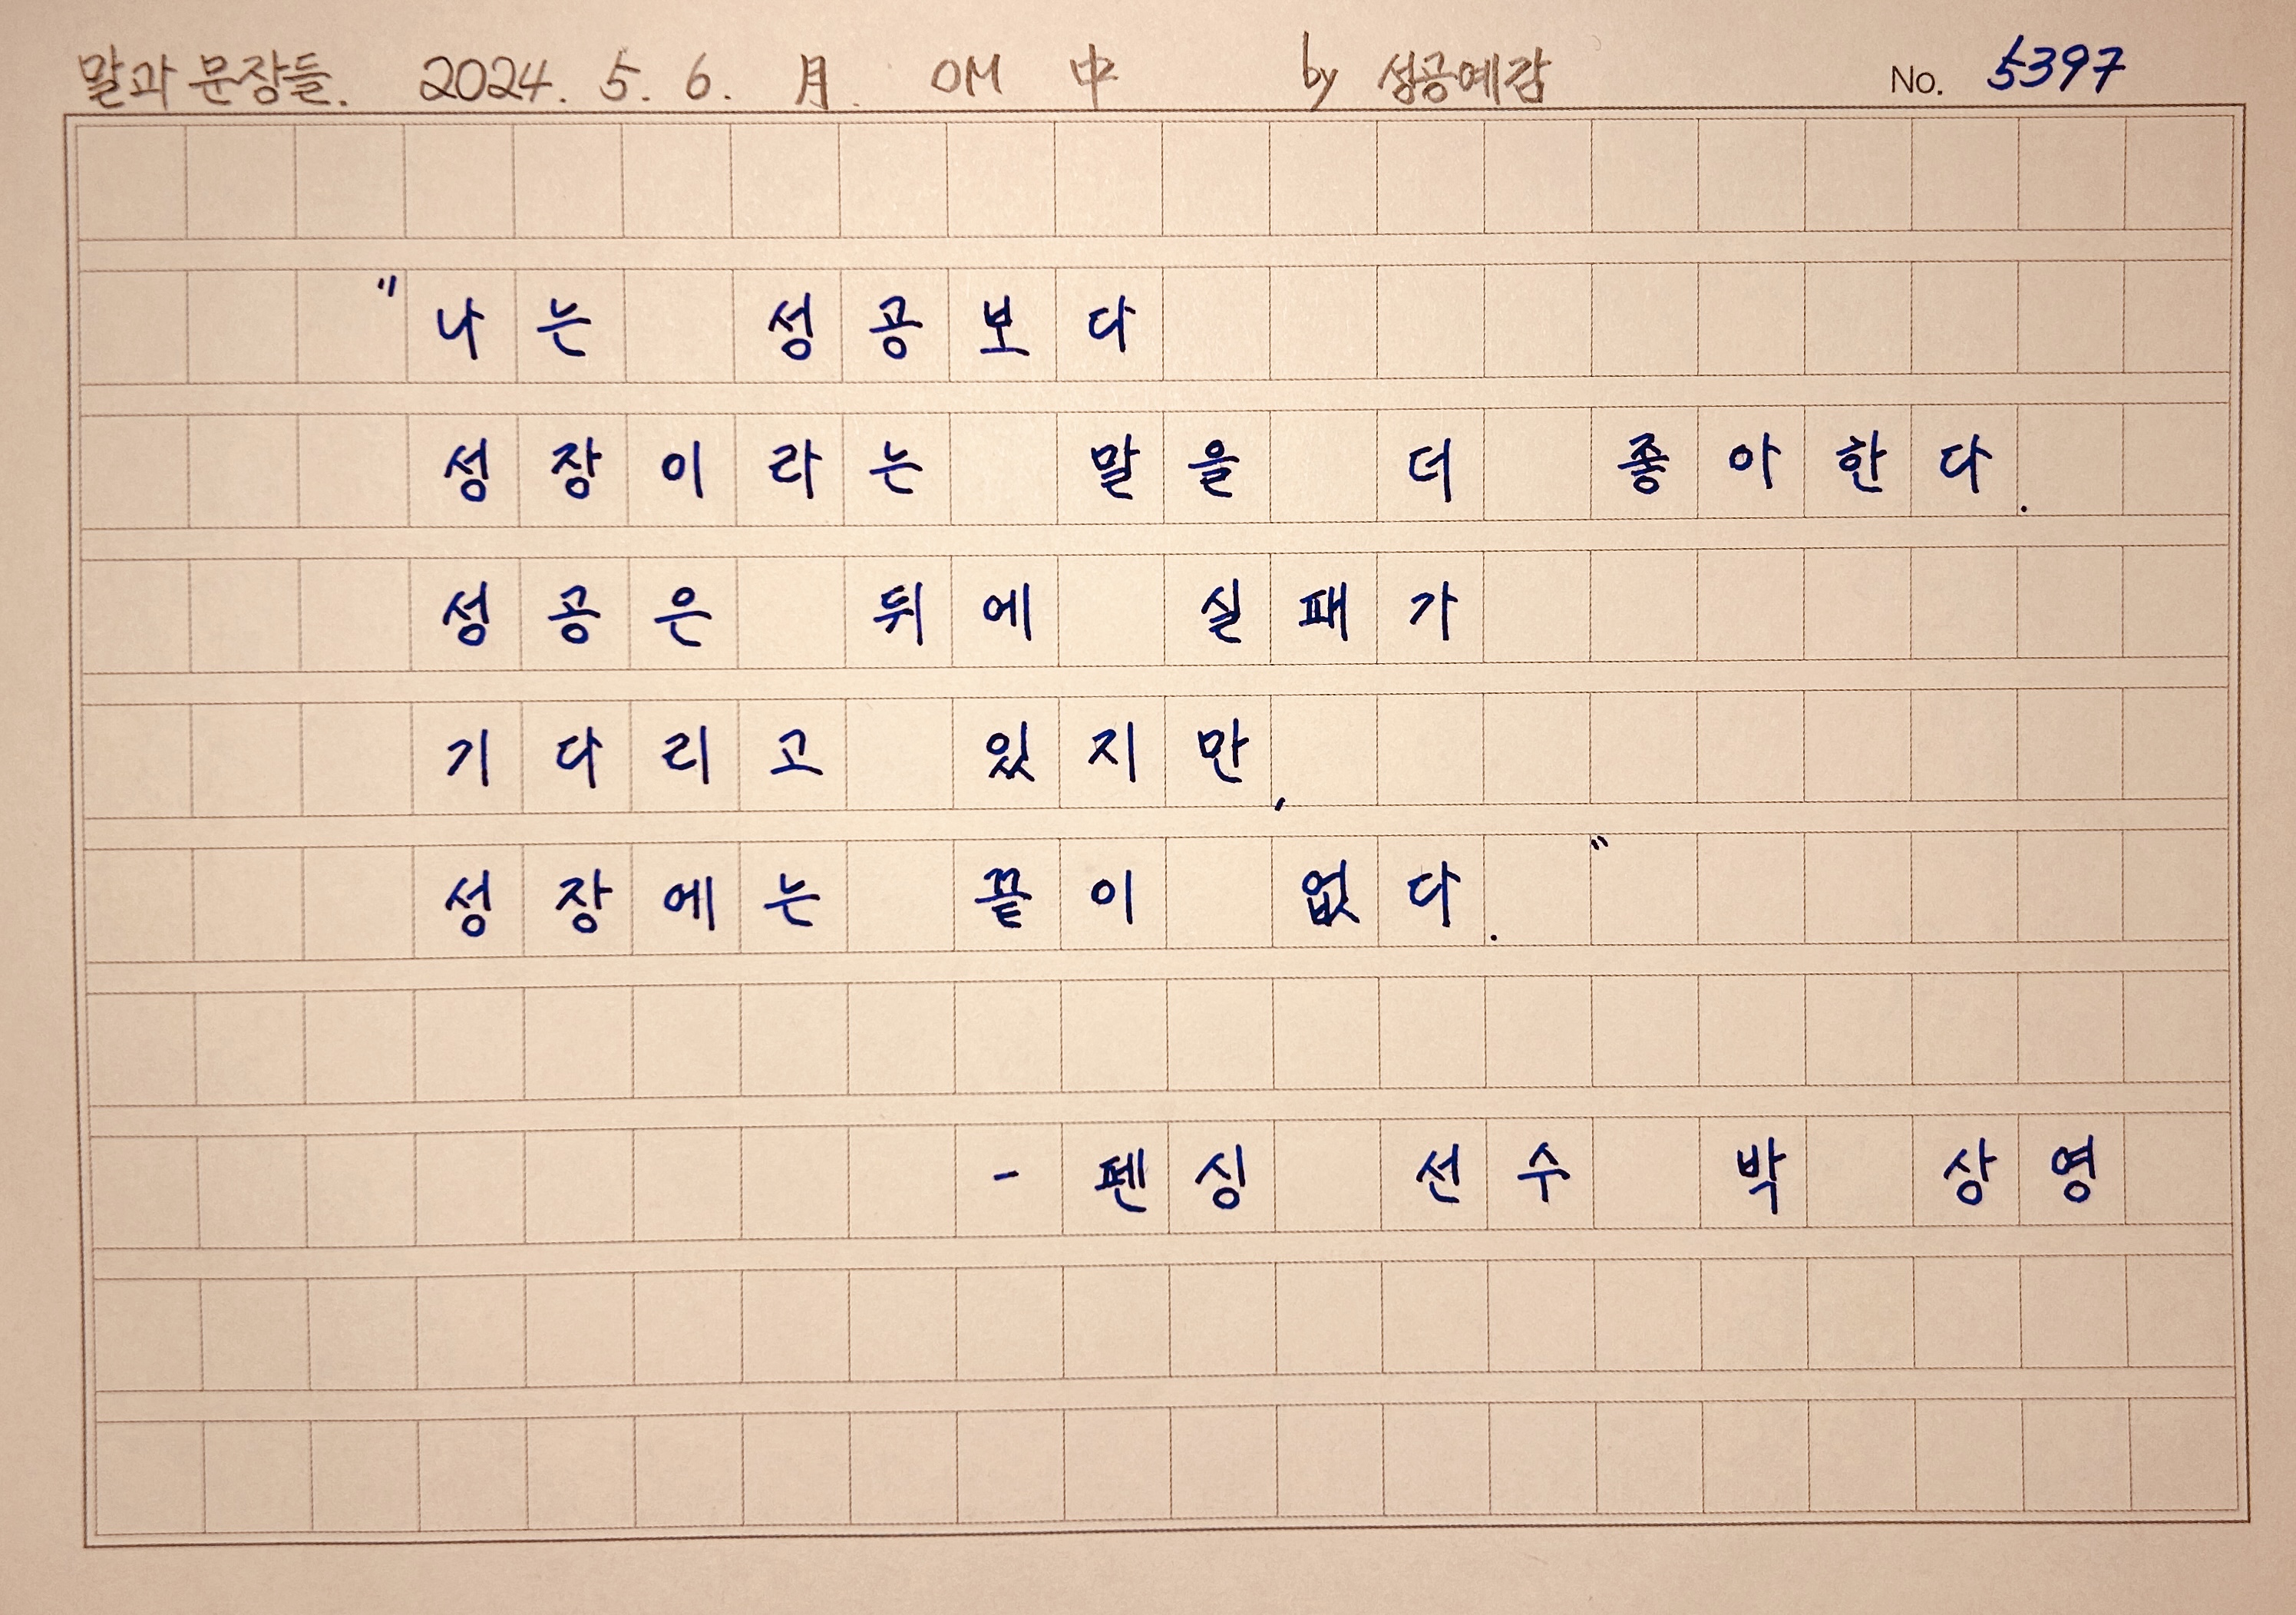 말과 문장들. 2024. 5. 6. 月. OM 中 by 성공예감 No. 5397
"나는 성공보다
성장이라는 말을 더 좋아한다.
성공은 뒤에 실패가
기다리고 있지만,
성장에는 끝이 없다."
- 펜싱 선수 박 상영